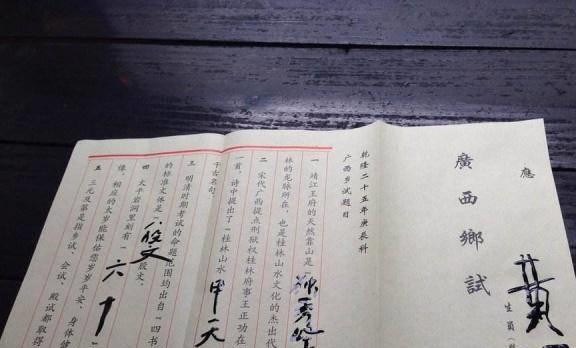 應
廣西鄉試
生員
乾隆二十五年庚辰科
广西乡试题目
一 靖江王府的天然靠山是“独秀峰
林的龙脉所在,也是桂林山水文化的杰出代
二 宋代广西提点刑狱权桂林府事王正功在
一首,诗中提出了“桂林山水甲天
千古名句。
三 明清时期考试的命题范围均出自“四书
的标准文体是“八股文 散文。
四 太平岩洞里刻有“六十
像,相应的太岁能保佑您岁岁平安、身体健
五 三元及第是指乡试、会试、殿试都取得